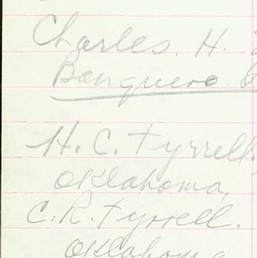 Charles. H.
Banquero.
H. C. Tyrrell.
Oklahoma,
C. R. Tyrrell.
Oklahoma